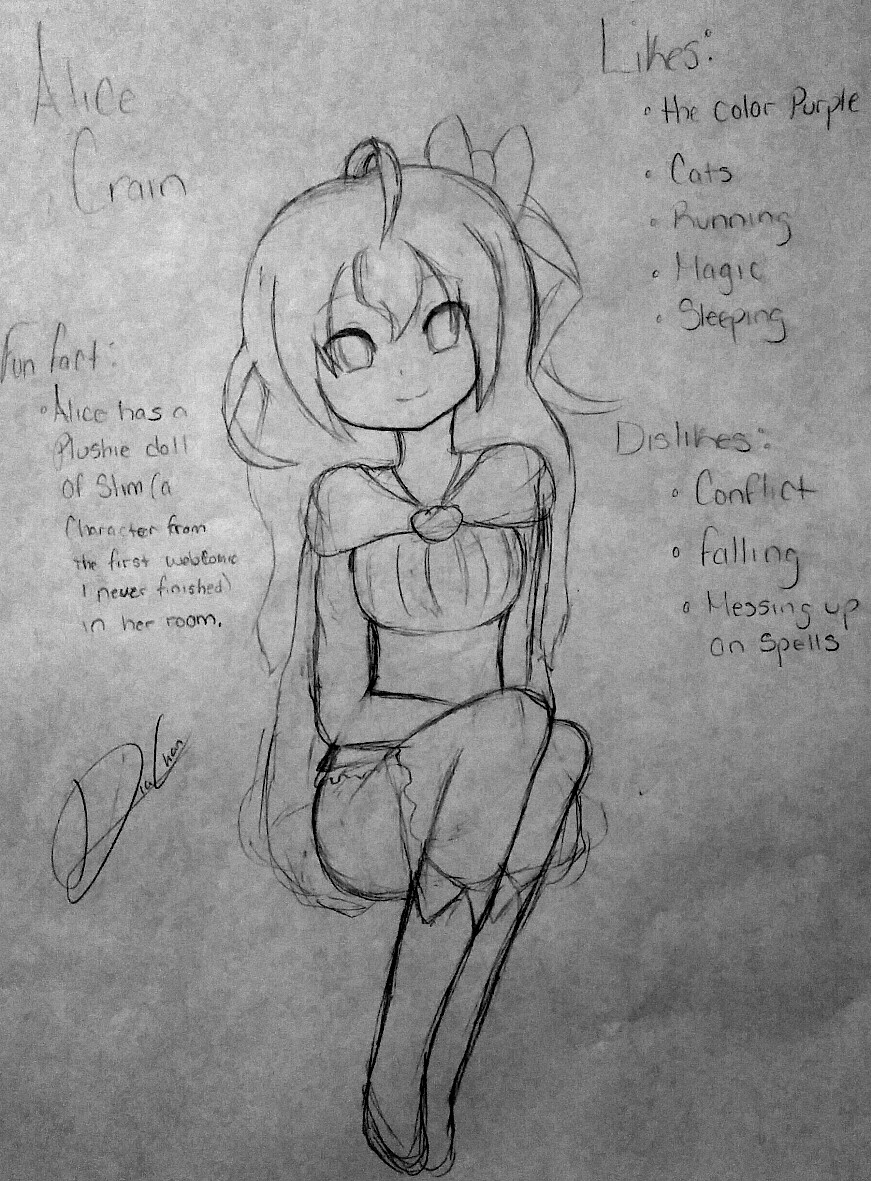 Alice
Crain
Likes:
• the color Purple
• Cats
• Running
• Magic
• Sleeping
Fun fact:
• Alice has a
Plushie doll
of Slim (a
Character from
the first webcomic
I never finished)
in her room.
Dislikes:
• Conflict
• falling
• Messing up
on Spells
DiaChan